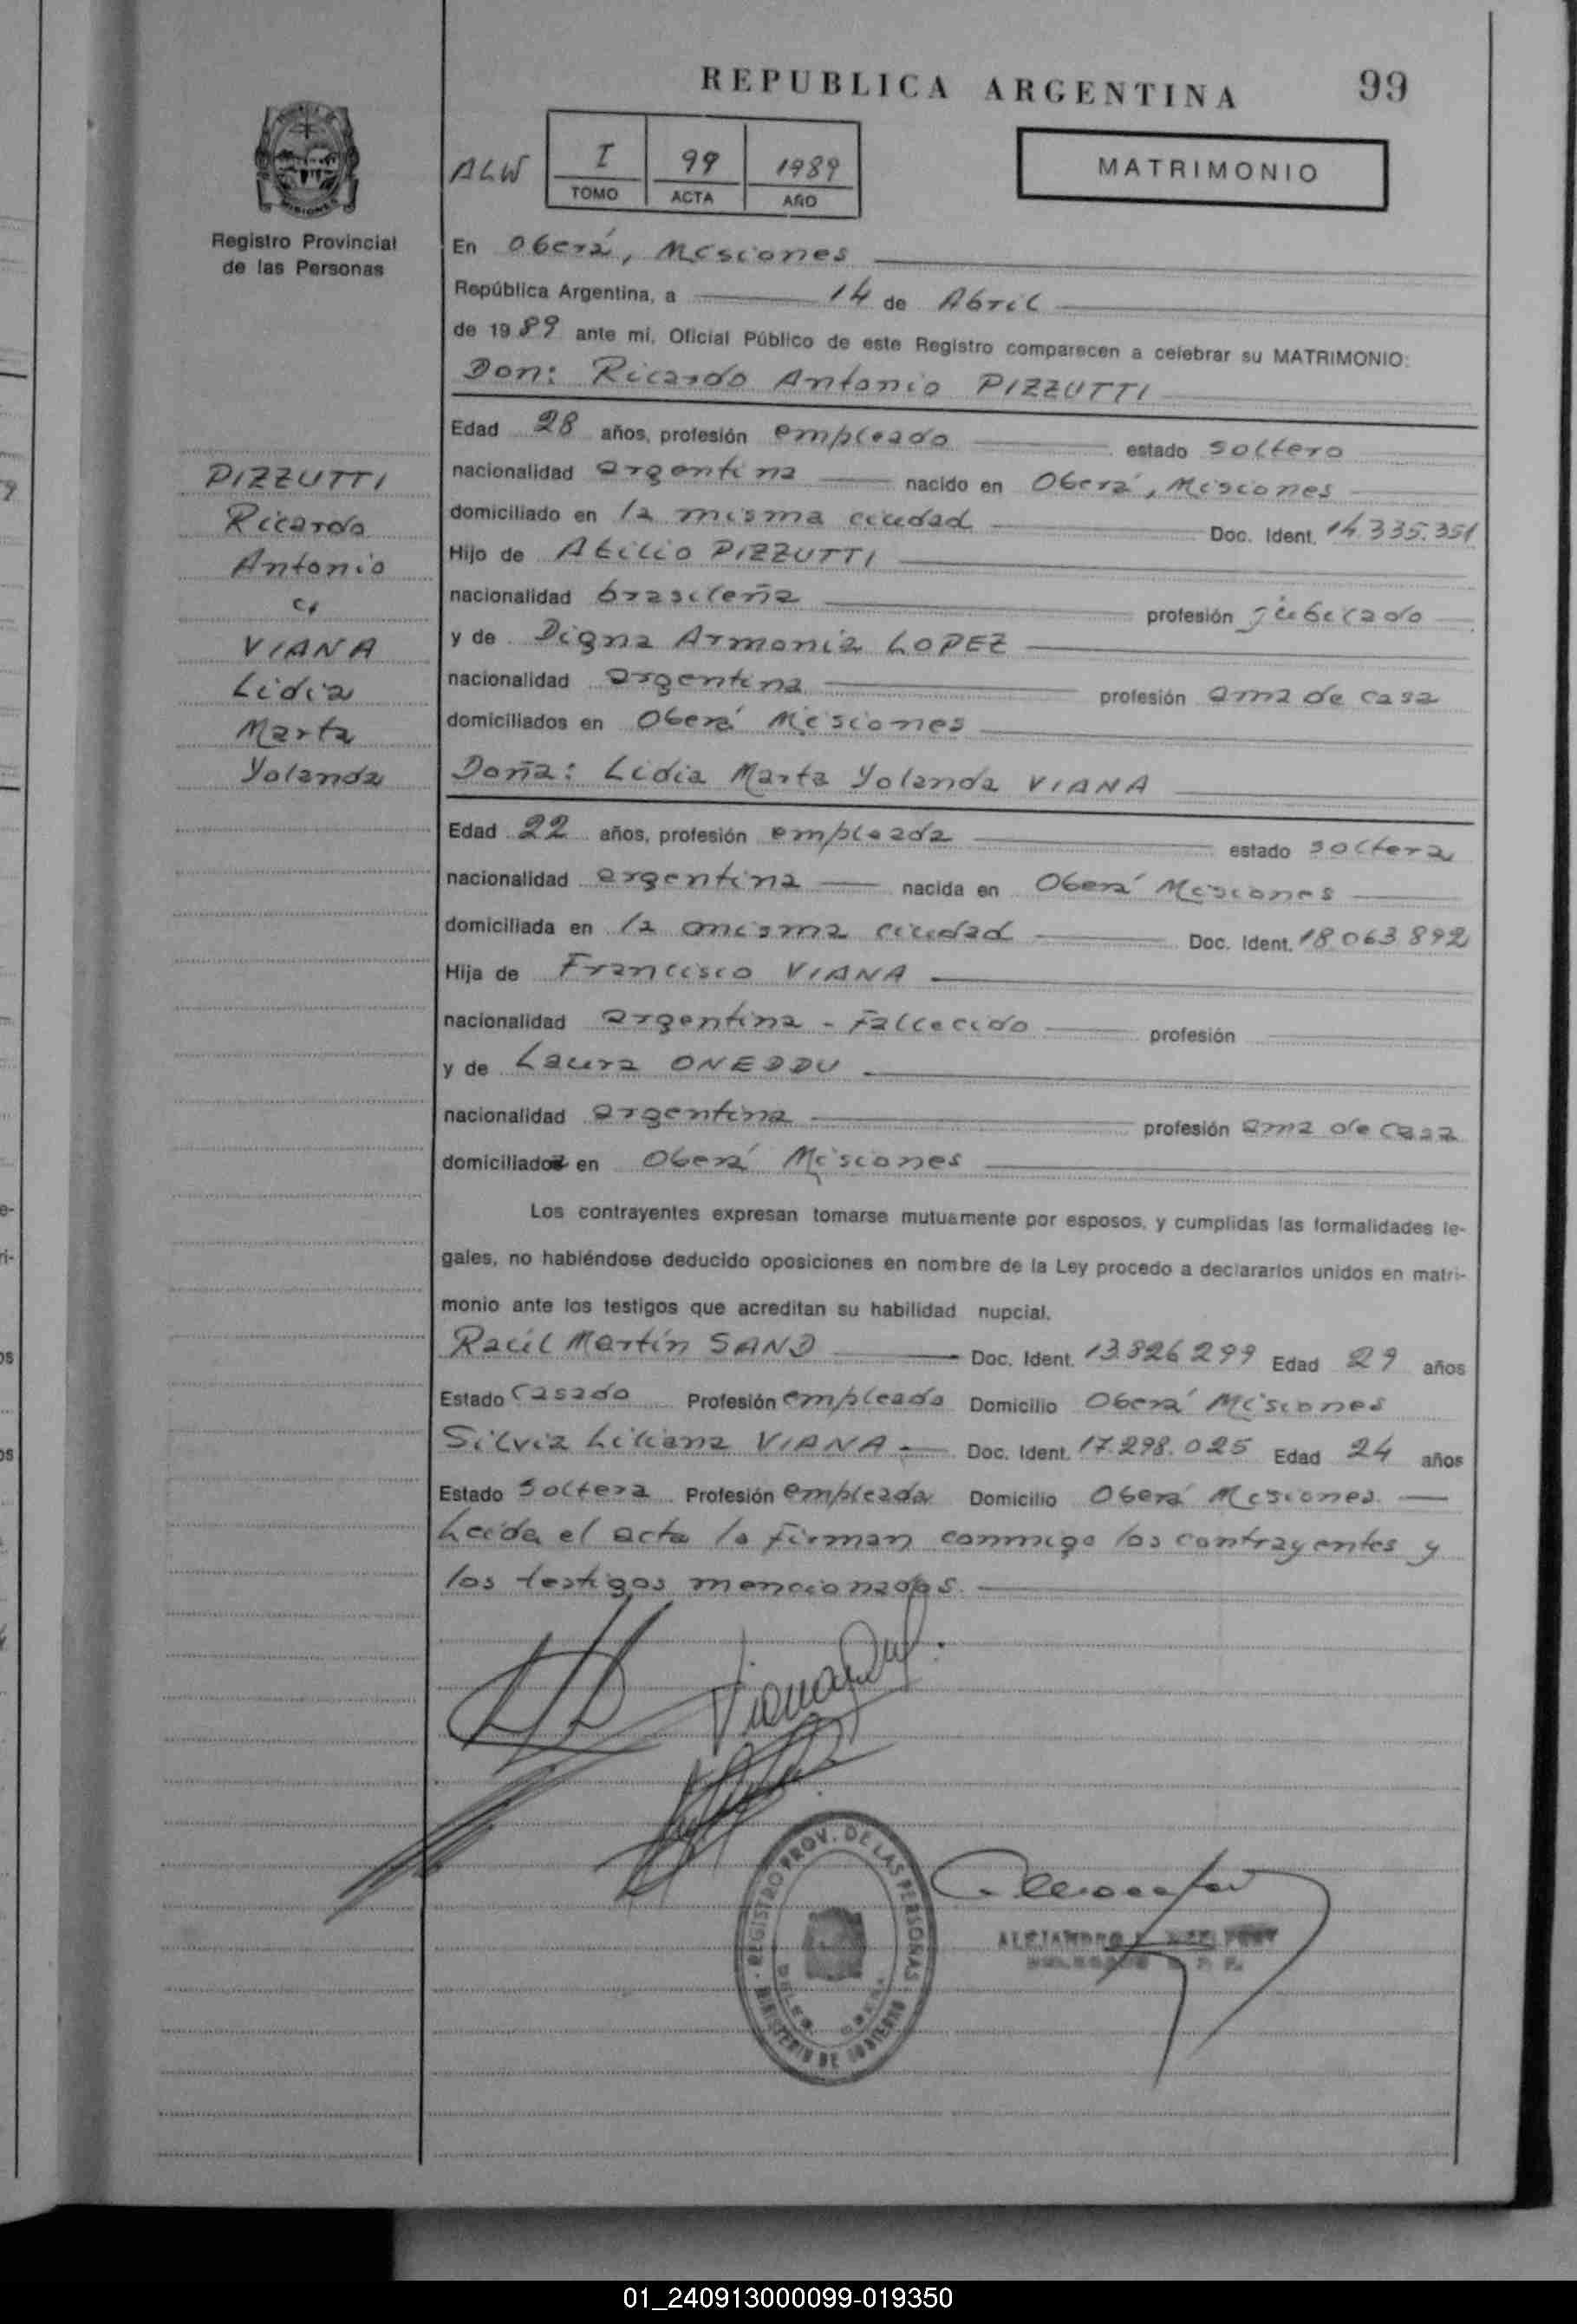 REPUBLICA ARGENTINA 99
ALW
I 99 1989
TOMO ACTA AÑO
MATRIMONIO
MISIONES
Registro Provincial
de las Personas
En Oberá, Misiones
República Argentina, a 14 de Abril
de 1989 ante mi, Oficial Público de este Registro comparecen a celebrar su MATRIMONIO:
Don: Ricardo Antonio PIZZUTTI
Edad 28 años, profesión empleado estado soltero
nacionalidad argentina nacido en Oberá, Misiones
domiciliado en la misma ciudad Doc. Ident. 14.335.351
Hijo de Atilio PIZZUTTI
nacionalidad brasileña profesión jubilado
y de Digna Armonia LOPEZ
nacionalidad argentina profesión ama de casa
domiciliados en Oberá Misiones
PIZZUTTI
Ricardo
Antonio
c/
VIANA
Lidia
Marta
Yolanda
Doña: Lidia Marta Yolanda VIANA
Edad 22 años, profesión empleada estado soltera
nacionalidad argentina nacida en Oberá Misiones
domiciliada en la misma ciudad Doc. Ident. 18.063.892
Hija de Francisco VIANA
nacionalidad argentina - Fallecido profesión
y de Laura ONEDDU
nacionalidad argentina profesión ama de casa
domiciliada en Oberá Misiones
Los contrayentes expresan tomarse mutuamente por esposos, y cumplidas las formalidades le-
gales, no habiéndose deducido oposiciones en nombre de la Ley procedo a declararlos unidos en matri-
monio ante los testigos que acreditan su habilidad nupcial.
Raúl Martín SAND Doc. Ident. 13.826.299 Edad 29 años
Estado Casado Profesión empleado Domicilio Oberá Misiones
Silvia Liliana VIANA Doc. Ident. 17.298.025 Edad 24 años
Estado Soltera Profesión empleada Domicilio Oberá Misiones.
Leída el acta la firman conmigo los contrayentes y
los testigos mencionados.
REGISTRO PROV. DE LAS PERSONAS
MINISTERIO DE GOBIERNO
ALEJANDRO
01_240913000099-019350